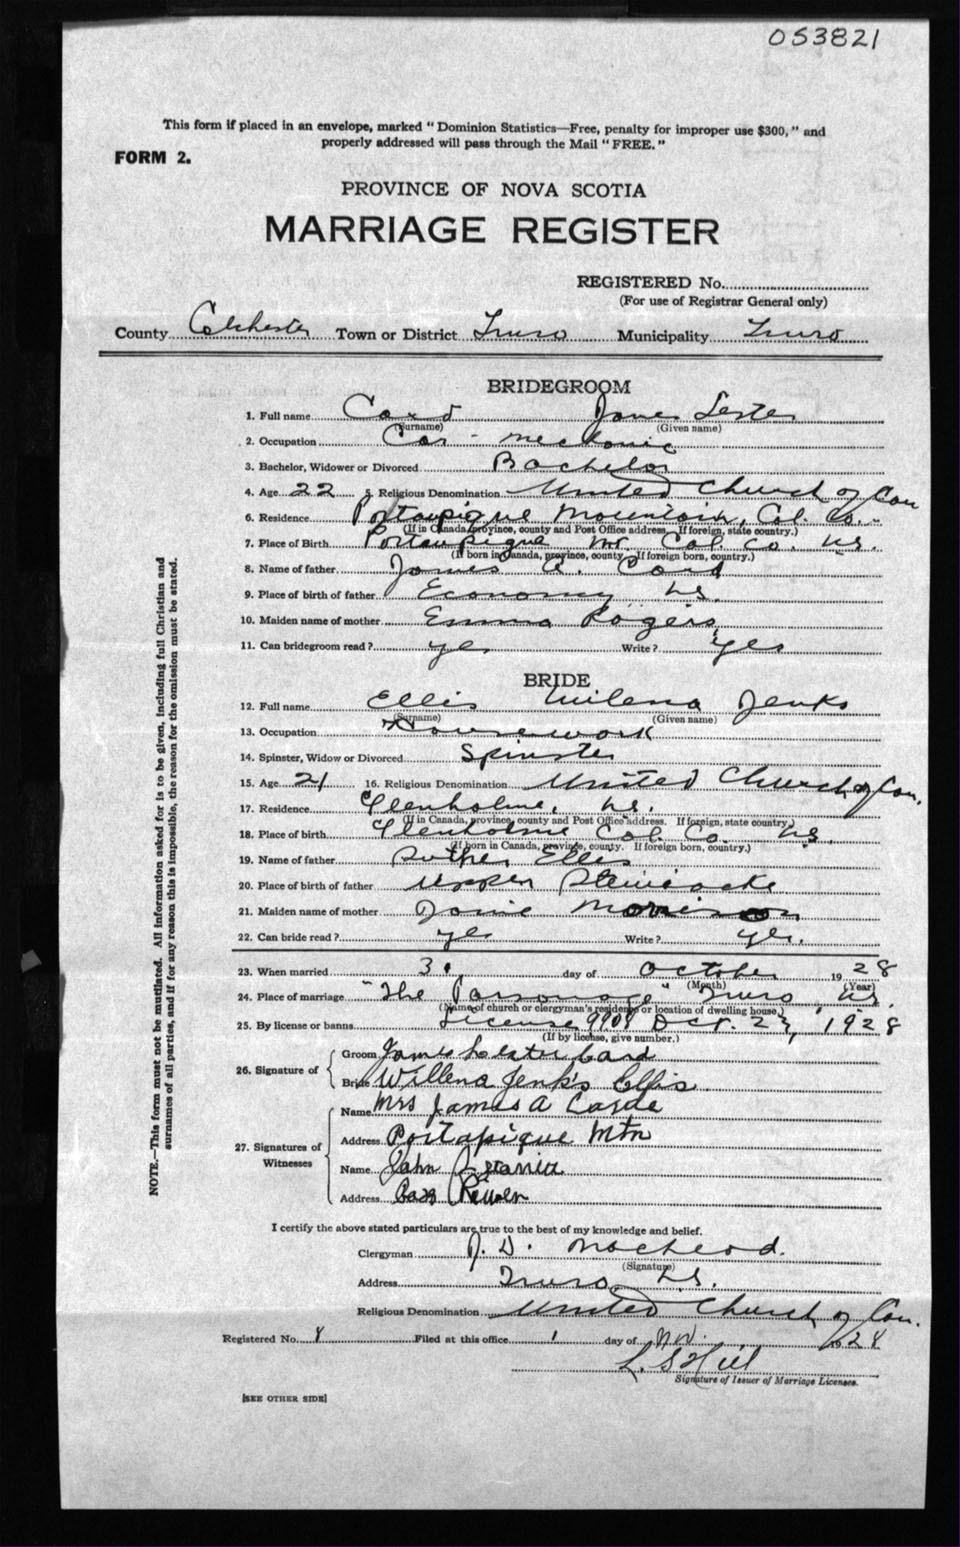 053821
This form if placed in an envelope, marked "Dominion Statistics—Free, penalty for improper use $300," and
properly addressed will pass through the Mail "FREE."
FORM 2.
PROVINCE OF NOVA SCOTIA
MARRIAGE REGISTER
REGISTERED No.
(For use of Registrar General only)
County Colchester Town or District Truro Municipality Truro
BRIDEGROOM
1. Full name Card James Lester
(Surname) (Given name)
2. Occupation Car - mechanic
3. Bachelor, Widower or Divorced Bachelor
4. Age 22 5. Religious Denomination United Church of Can
6. Residence Portaupique Mountain, Col. Co.
(If in Canada, province, county and Post Office address. If foreign, state country.)
7. Place of Birth Portaupique Mt. Col. Co. N.S.
(If born in Canada, province, county. If foreign born, country.)
8. Name of father James A. Card
9. Place of birth of father Economy N.S.
10. Maiden name of mother Emma Rogers
11. Can bridegroom read? yes Write? yes
BRIDE
12. Full name Ellis Wilena Jenks
(Surname) (Given name)
13. Occupation Housework
14. Spinster, Widow or Divorced Spinster
15. Age 21 16. Religious Denomination United Church of Can.
17. Residence Glenholme, N.S.
(If in Canada, province, county and Post Office address. If foreign, state country.)
18. Place of birth Glenholme Col. Co. N.S.
(If born in Canada, province, county. If foreign born, country.)
19. Name of father Luther Ellis
20. Place of birth of father Upper Stewiacke
21. Maiden name of mother Morrison
22. Can bride read? yes Write? yes.
23. When married 31 day of October 1928
(Month) (Year)
24. Place of marriage "The Parsonage" Truro, N.S.
(Name of church or clergyman's residence or location of dwelling house.)
25. By license or banns License Oct. 1928
(If by license, give number.)
26. Signature of
Groom James Lester Card
Bride Willena Jenks Ellis
27. Signatures of Witnesses
Name Mrs James A Carde
Address Portapique Mtn
Name John
Address Bass River
I certify the above stated particulars are true to the best of my knowledge and belief.
Clergyman J. D. MacLeod.
(Signature)
Address Truro, N.S.
Religious Denomination United Church of Can.
Registered No. 8 Filed at this office 1 day of Nov. 1928
Signature of Issuer of Marriage Licenses.
[SEE OTHER SIDE]
NOTE.—This form must not be mutilated. All information asked for is to be given, including full Christian and
surnames of all parties, and if for any reason this is impossible, the reason for the omission must be stated.